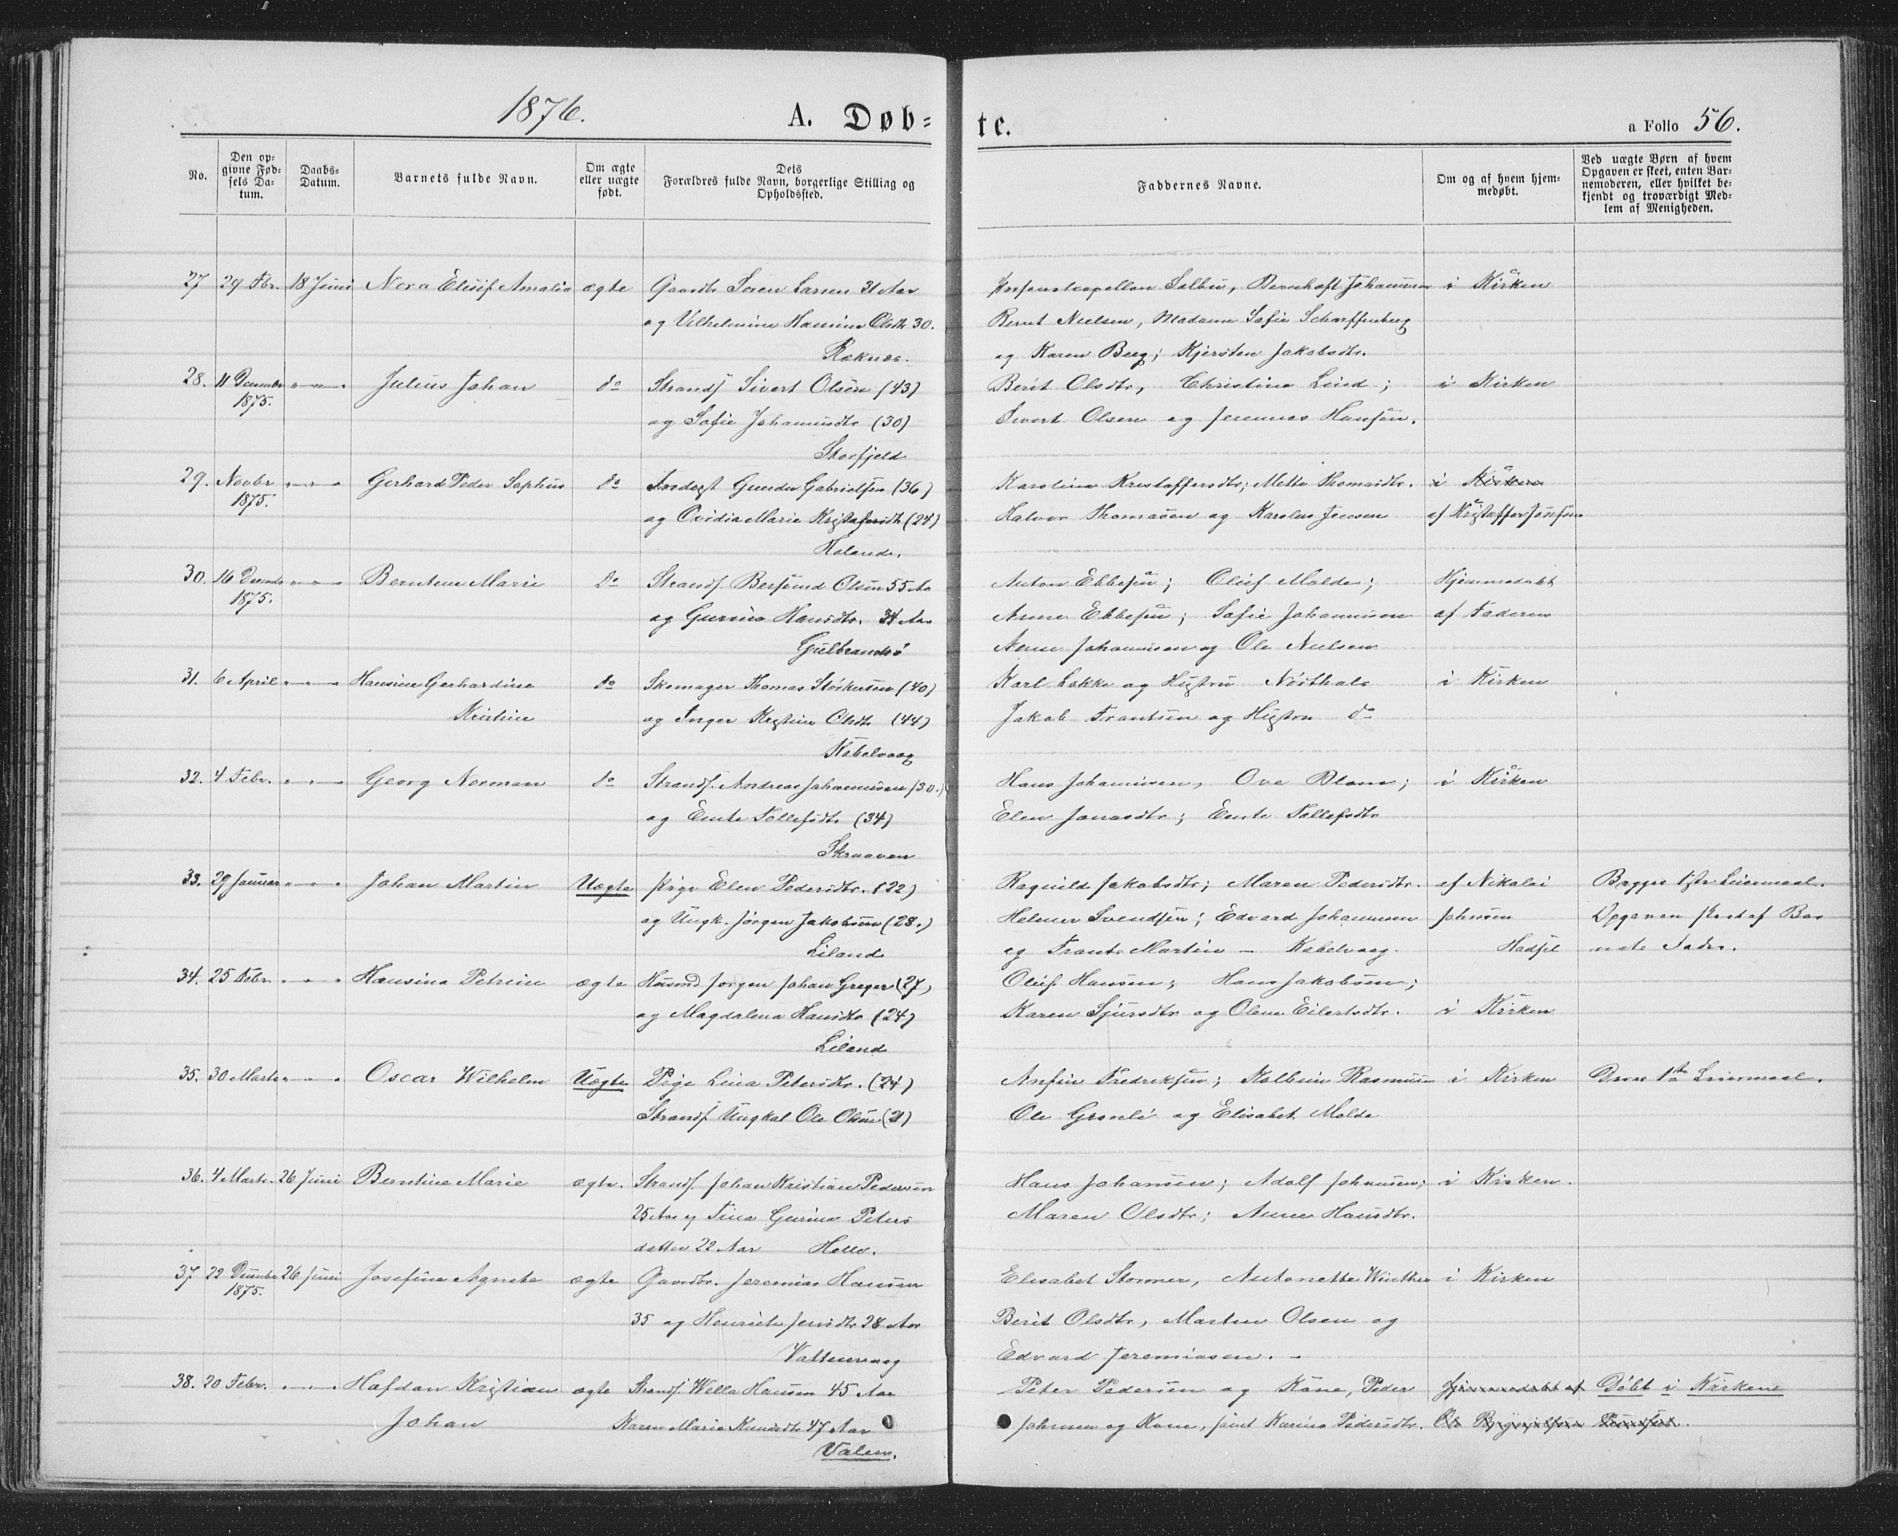 1876.
A. Døb-
te.
a Folio 56.
No.
Den op-
givne Fød-
sels Da-
tum.
Daabs-
Datum.
Barnets fulde Navn.
Om ægte
eller uægte
født.
Dets
Forældres fulde Navn, borgerlige Stilling og
Opholdssted.
Faddernes Navne.
Om og af hvem hjem-
medøbt.
Ved uægte Børn af hvem
Opgaven er skeet, enten Bar-
nemoderen, eller hvilket be-
kjendt og troværdigt Med-
lem af Menigheden.
27 29 Fbr. 18 Juni Nora Elisif Amalia ægte Gaardbr Søren Larsen 31 Aar
og Vilhelmine Hansine Olsdtr 30.
Røknes.
Johannsen i Kirken
Bernt Nielsen, Madame Sofie Scharffenberg
og Karen Berg; Kjersten Jakobsdtr.
28. 11 December " " " Julius Johan do Strands Sivert Olsen (43)
1875.
og Sofie Johannisdtr (30)
Storfjeld
Berit Olsdtr, Christine Lind; i Kirken
Sivert Olsen og Jeremias Hansen.
29. Novbr " " " Gerhard Peder Sophus do Inderst Gunder Gabrielsen (36)
1875.
og Ovidia Marie Kristofersdtr (24)
Kalands.
Karolina Kristaffersdtr; Mette Thomasdtr. i Kirken
Halvor Thomasen og Karolus Jensen af Kristaffer Jonsen
30. 16 Decembr " " " Berntine Marie do Strands. Bersvend Olsen 55 Aar
1875.
og Gurina Hansdtr. 34 Aar
Gulbrandsø
Anton Ebbesen; Oluf Molde; Hjemmedøbt
Anne Ebbesen; Sofie Johannesen af Faderen
Anne Johannesen og Ole Nielsen
31. 6 April " " " Hansine Gerhardine do Skomager Thomas Størkersen (40)
Kristine
og Inger Kristine Olsdtr (44)
Kabelvaag
Karl Lokke og Hustru i Kirken
Jakob Frantsen og Hustru do
32. 4 Febr. " " " Georg Norman do Strands. Andreas Johannesen (30.)
og Ente Tollefsdtr (34)
Skraaven
Hans Johannesen, Ove Blom; i Kirken
Elen Jonasdtr; Ente Tollefsdtr
33. 29 Januar " " " Johan Martin Uægte Pige Elen Pedersdtr. (22)
og Ungk. Jørgen Jakobsen (28.)
Liland
Ragnild Jakobsdtr; Maren Pedersdtr. af Nikolai Begges 1ste Leiermaal.
Helmer Svendsen; Edvard Johannsen Johnsen Opgaven skeet af Bar
og Frants Martin – Kabelvaag. Hadsel nets Fader.
34. 25 Febr. " " " Hansina Petrine ægte Husmd Jørgen Johan Greger (27)
og Magdalena Hansdtr (24)
Liland
Oluf Hansen; Hans Jakobsen;
Karen Sjursdtr og Oline Eilertsdtr. i Kirken
35. 30 Marts " " " Oscar Wilhelm Uægte Pige Lina Petersdtr. (24)
Strands Ungkal Ole Olsen (21)
Anfin Fredriksen; Kolbein Rasmusen i Kirken Deres 1ste Leiermaal.
Ole Grønli og Elisabet Molde
36. 4 Marts. 26 Juni Berntine Marie ægte. Strands. Johan Kristian Pedersen
25 Aar og Tina Gurina Peters
datter 22 Aar Helle.
Hans Johansen; Adolf Johansen; i Kirken.
Maren Olsdtr; Anne Hansdtr.
37. 22 December 26 Juni Josefine Agnete ægte Gaardbr. Jeremias Hansen
1875.
35 og Henriete Jensdtr 28 Aar
Vattervaag
Elisabet Stormer, Antonette Winther i Kirken
Berit Olsdtr, Morten Olsen og
Edvard Jeremiasen. –
38. 20 Febr. " " " Hafdan Kristian ægte Strands. Hansen 45 Aar
Johan
Karen Marie Knudsdtr 47 Aar
Valen.
Peter Pedersen og Kone, Peder Hjemmedøbt af Døbt i Kirken
Johnsen og Kone, samt Karina Pedersdtr.